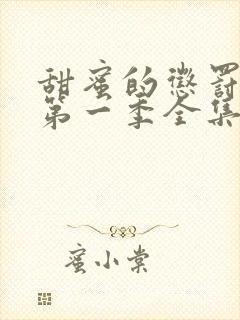 甜蜜的懲罰
第一季全集
蜜小棠